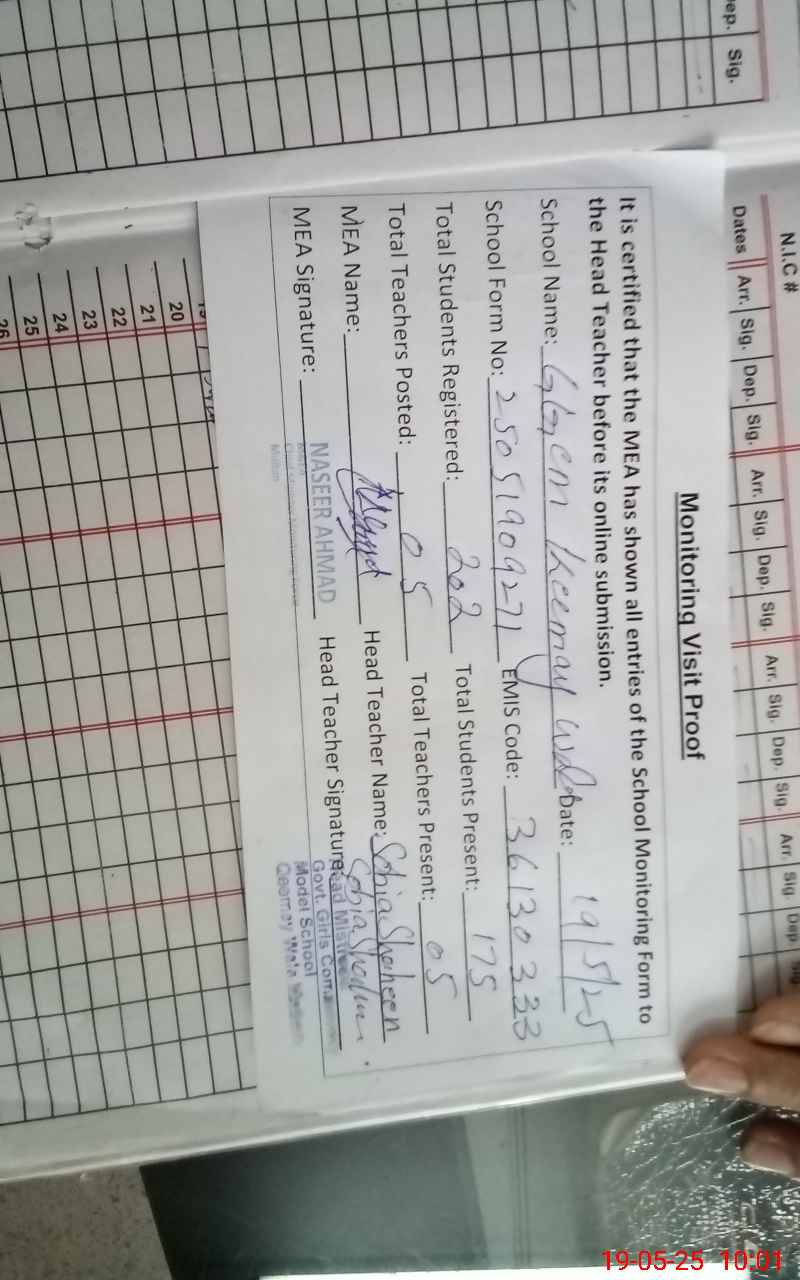 ep. Sig.
N.I.C #
Dates Arr. Sig. Dep. Sig. Arr. Sig. Dep. Sig. Arr. Sig. Dep. Sig. Arr. Sig. Dep. Sig
Monitoring Visit Proof
It is certified that the MEA has shown all entries of the School Monitoring Form to
the Head Teacher before its online submission.
School Name: Date: 19/5/25
School Form No: 25051909271 EMIS Code: 36130333
Total Students Registered: 202 Total Students Present: 175
Total Teachers Posted: 05 Total Teachers Present: 05
MEA Name: Head Teacher Name: Sobia Shaheen
MEA Signature: NASEER AHMAD Head Teacher Signature:
Multan
Head Mistress
Govt. Girls Com.
Model School
19
20
21
22
23
24
25
26
19-05-25 10:01